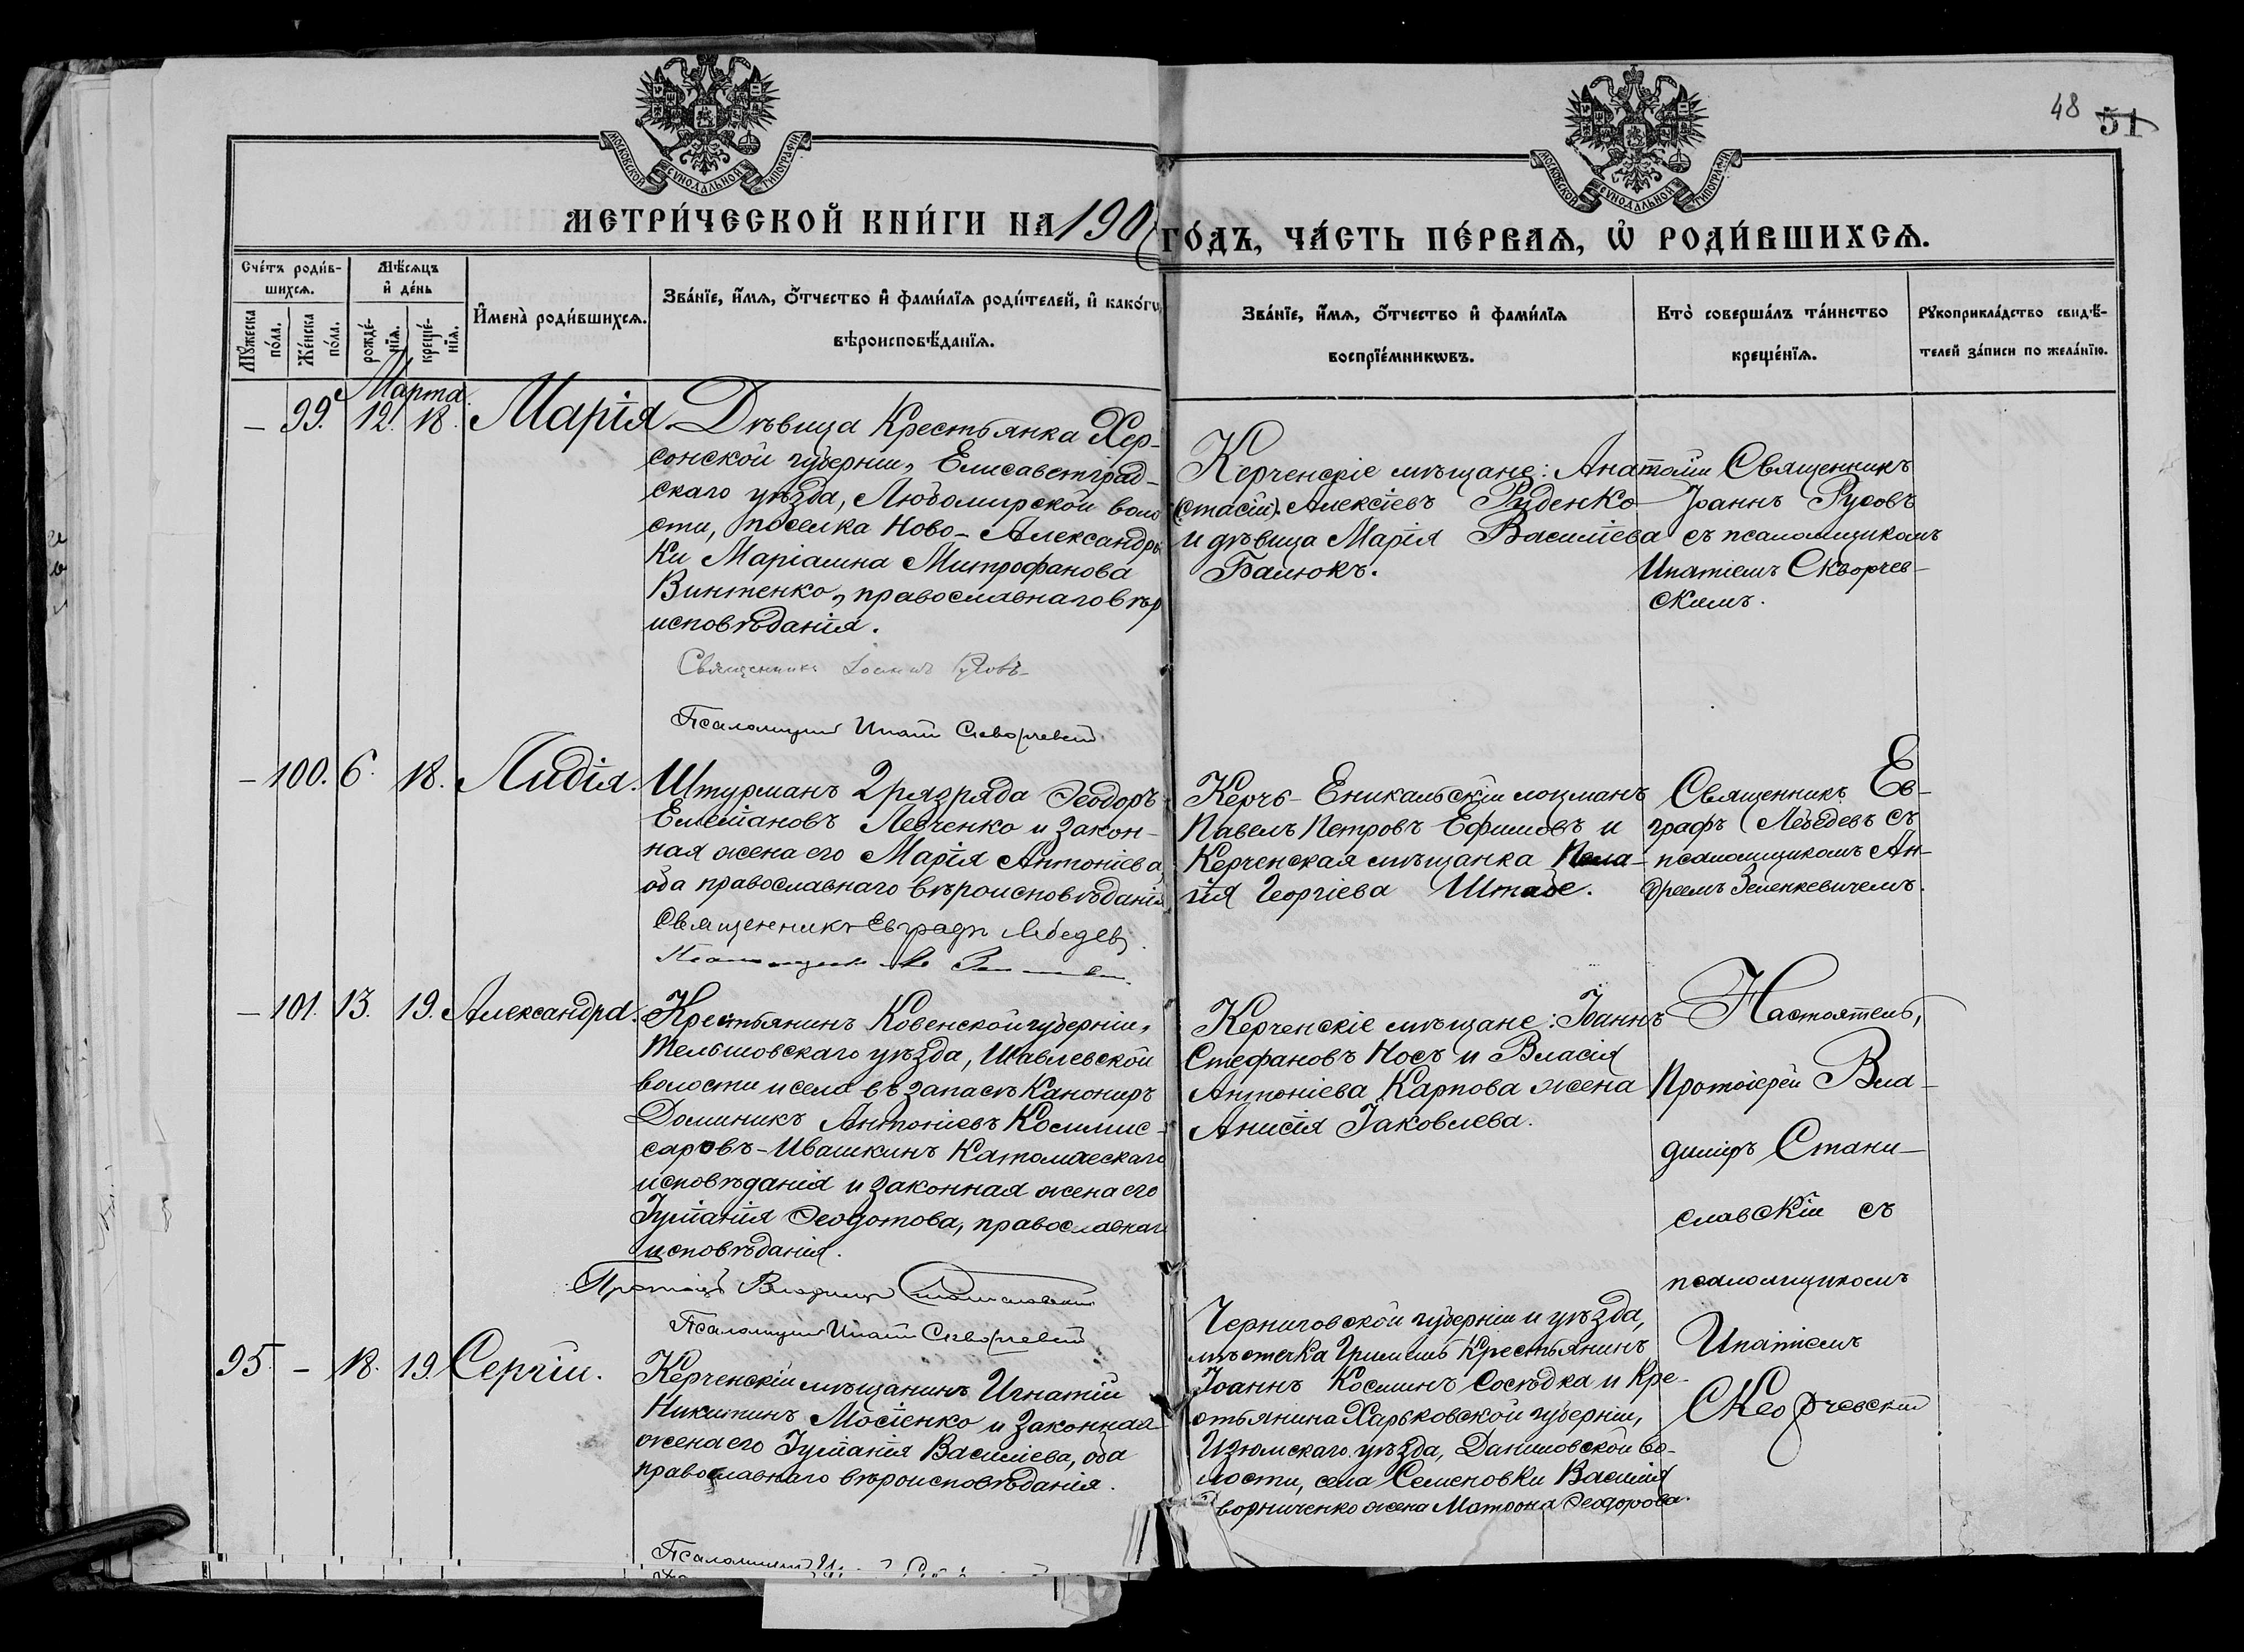 48 51
МОСКОВСКОЙ СѴНОДАЛЬНОЙ ТИПОГРАФІИ
МОСКОВСКОЙ СѴНОДАЛЬНОЙ ТИПОГРАФІИ
МЕТРИ́ЧЕСКОЙ КНИ́ГИ НА 190
ГО́ДЪ, ЧА́СТЬ ПЕ́РВАѦ, Ѡ҆ РОДИ́ВШИХСѦ.
Сче́тъ роди́в-
шихсѧ.
Мѣ́сѧцъ
и҆ де́нь
Мꙋ́жеска
по́ла.
Же́нска
по́ла.
рожде́-
нїѧ.
креще́-
нїѧ.
И҆мена̀ роди́вшихсѧ.
Зва́нїе, и҆́мѧ, ѻ҆́тчество и҆ фами́лїѧ роди́телей, и҆ како́гѡ
вѣроисповѣ́данїѧ.
Зва́нїе, и҆́мѧ, ѻ҆́тчество и҆ фами́лїѧ
воспрїе́мникѡвъ.
Кто̀ соверша́лъ та́инство
креще́нїѧ.
Рꙋкоприкла́дство свидѣ́-
телей за́писи по жела́нїю.
Марта
– 99. 12. 18. Марія.
Дѣвица Крестьянка Хер-
сонской губерніи, Елисаветград-
скаго уѣзда, Любомирской воло
сти, поселка Ново-Александров
ки Маріамна Митрофанова
Винтенко, православнаго вѣр
исповѣданія.
Священникъ Іоаннъ Русовъ
Псаломщикъ Ипатій Скворчевскій
Керченскіе мѣщане: Анатолій
(стасій). Алексіевъ Руденко
и дѣвица Марія Васильева
Балюкъ.
Священникъ
Іоаннъ Русовъ
съ псаломщикомъ
Ипатіемъ Скворчев-
скимъ.
– 100. 6. 18. Лидія.
Штурманъ 2 разряда Ѳеодоръ
Емеліановъ Левченко и закон-
ная жена его Марія Антоніева,
оба православнаго вѣроисповѣданія
Священникъ Евграфъ Лебедевъ
Керчь-Еникальскій лоцманъ
Павелъ Петровъ Ефимовъ и
Керченская мѣщанка Пела-
гія Георгіева Штабе.
Священникъ Ев-
графъ Лебедевъ съ
псаломщикомъ Ан-
дреемъ Зеленкевичемъ.
– 101. 13. 19. Александра.
Крестьянинъ Ковенской губерніи,
Тельшовскаго уѣзда, Шавлевской
волости и села въ запасѣ Канониръ
Доминикъ Антоніевъ Коммис-
саровъ-Ивашкинъ Католическаго
исповѣданія и законная жена его
Іуліанія Ѳеодотова, православнаго
исповѣданія.
Протоіерей Владиміръ Станиславскій
Псаломщикъ Ипатій Скворчевскій
Керченскіе мѣщане: Іоаннъ
Стефановъ Носъ и Власія
Антоніева Карпова жена
Анисія Іаковлева.
Настоятель,
Протоіерей Вла-
диміръ Стани-
славскій съ
псаломщикомъ
Ипатіемъ
Скворчевскимъ
95. – 18. 19. Сергій.
Керченскій мѣщанинъ Игнатій
Никитинъ Мосіенко и законная
жена его Іуліанія Василіева, оба
православнаго вѣроисповѣданія.
Псаломщикъ
Черниговской губерніи и уѣзда,
мѣстечка Крестьянинъ
Іоаннъ Косминъ Сосѣдка и Кре-
стьянина Харьковской губерніи,
Изюмскаго уѣзда, Даниловской во-
лости, села Семеновки Василія
Дворниченко жена Матрона Ѳеодорова.